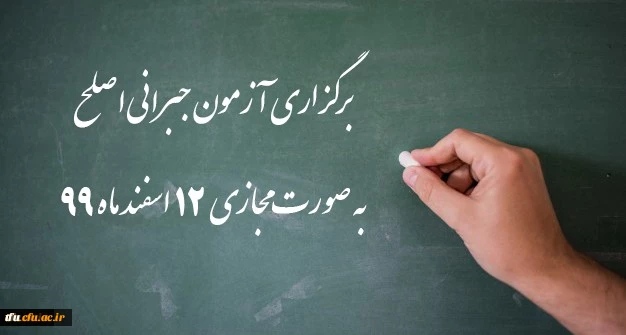 برگزاری آزمون جبرانی اصلح
به صورت مجازی ۱۲ اسفند ماه ۹۹
tfu.cfu.ac.ir